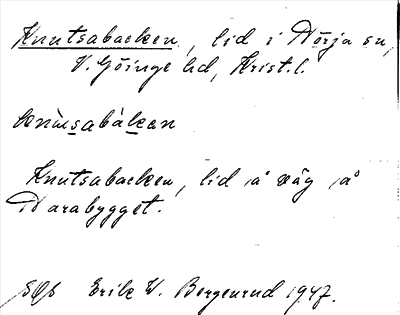 Knutsabacken, lid i Nörja sn,
V. Göinge hd, Krist.l.
knùsabàkan
Knutsabacken, lid å väg på
Narabygget.
SOS Erik W. Borgenrud 1947.